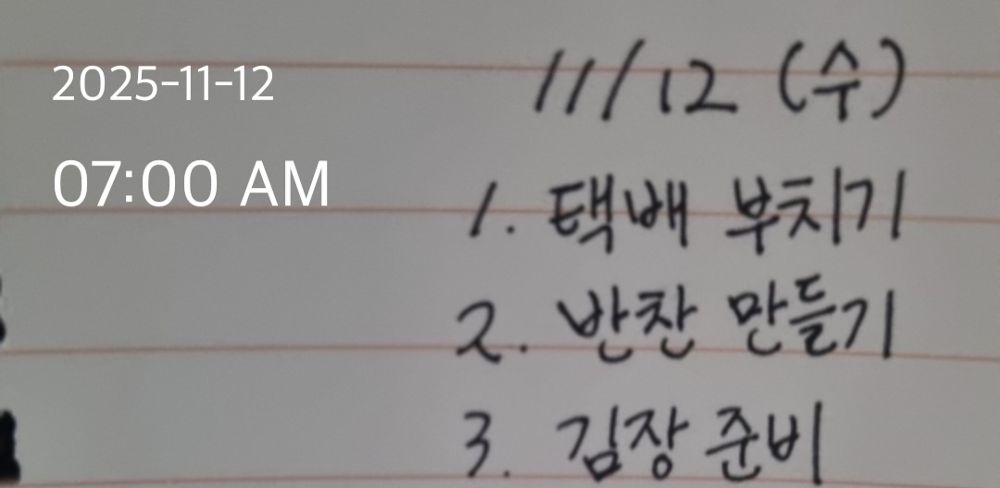 2025-11-12
07:00 AM
11/12 (수)
1. 택배 부치기
2. 반찬 만들기
3. 김장 준비